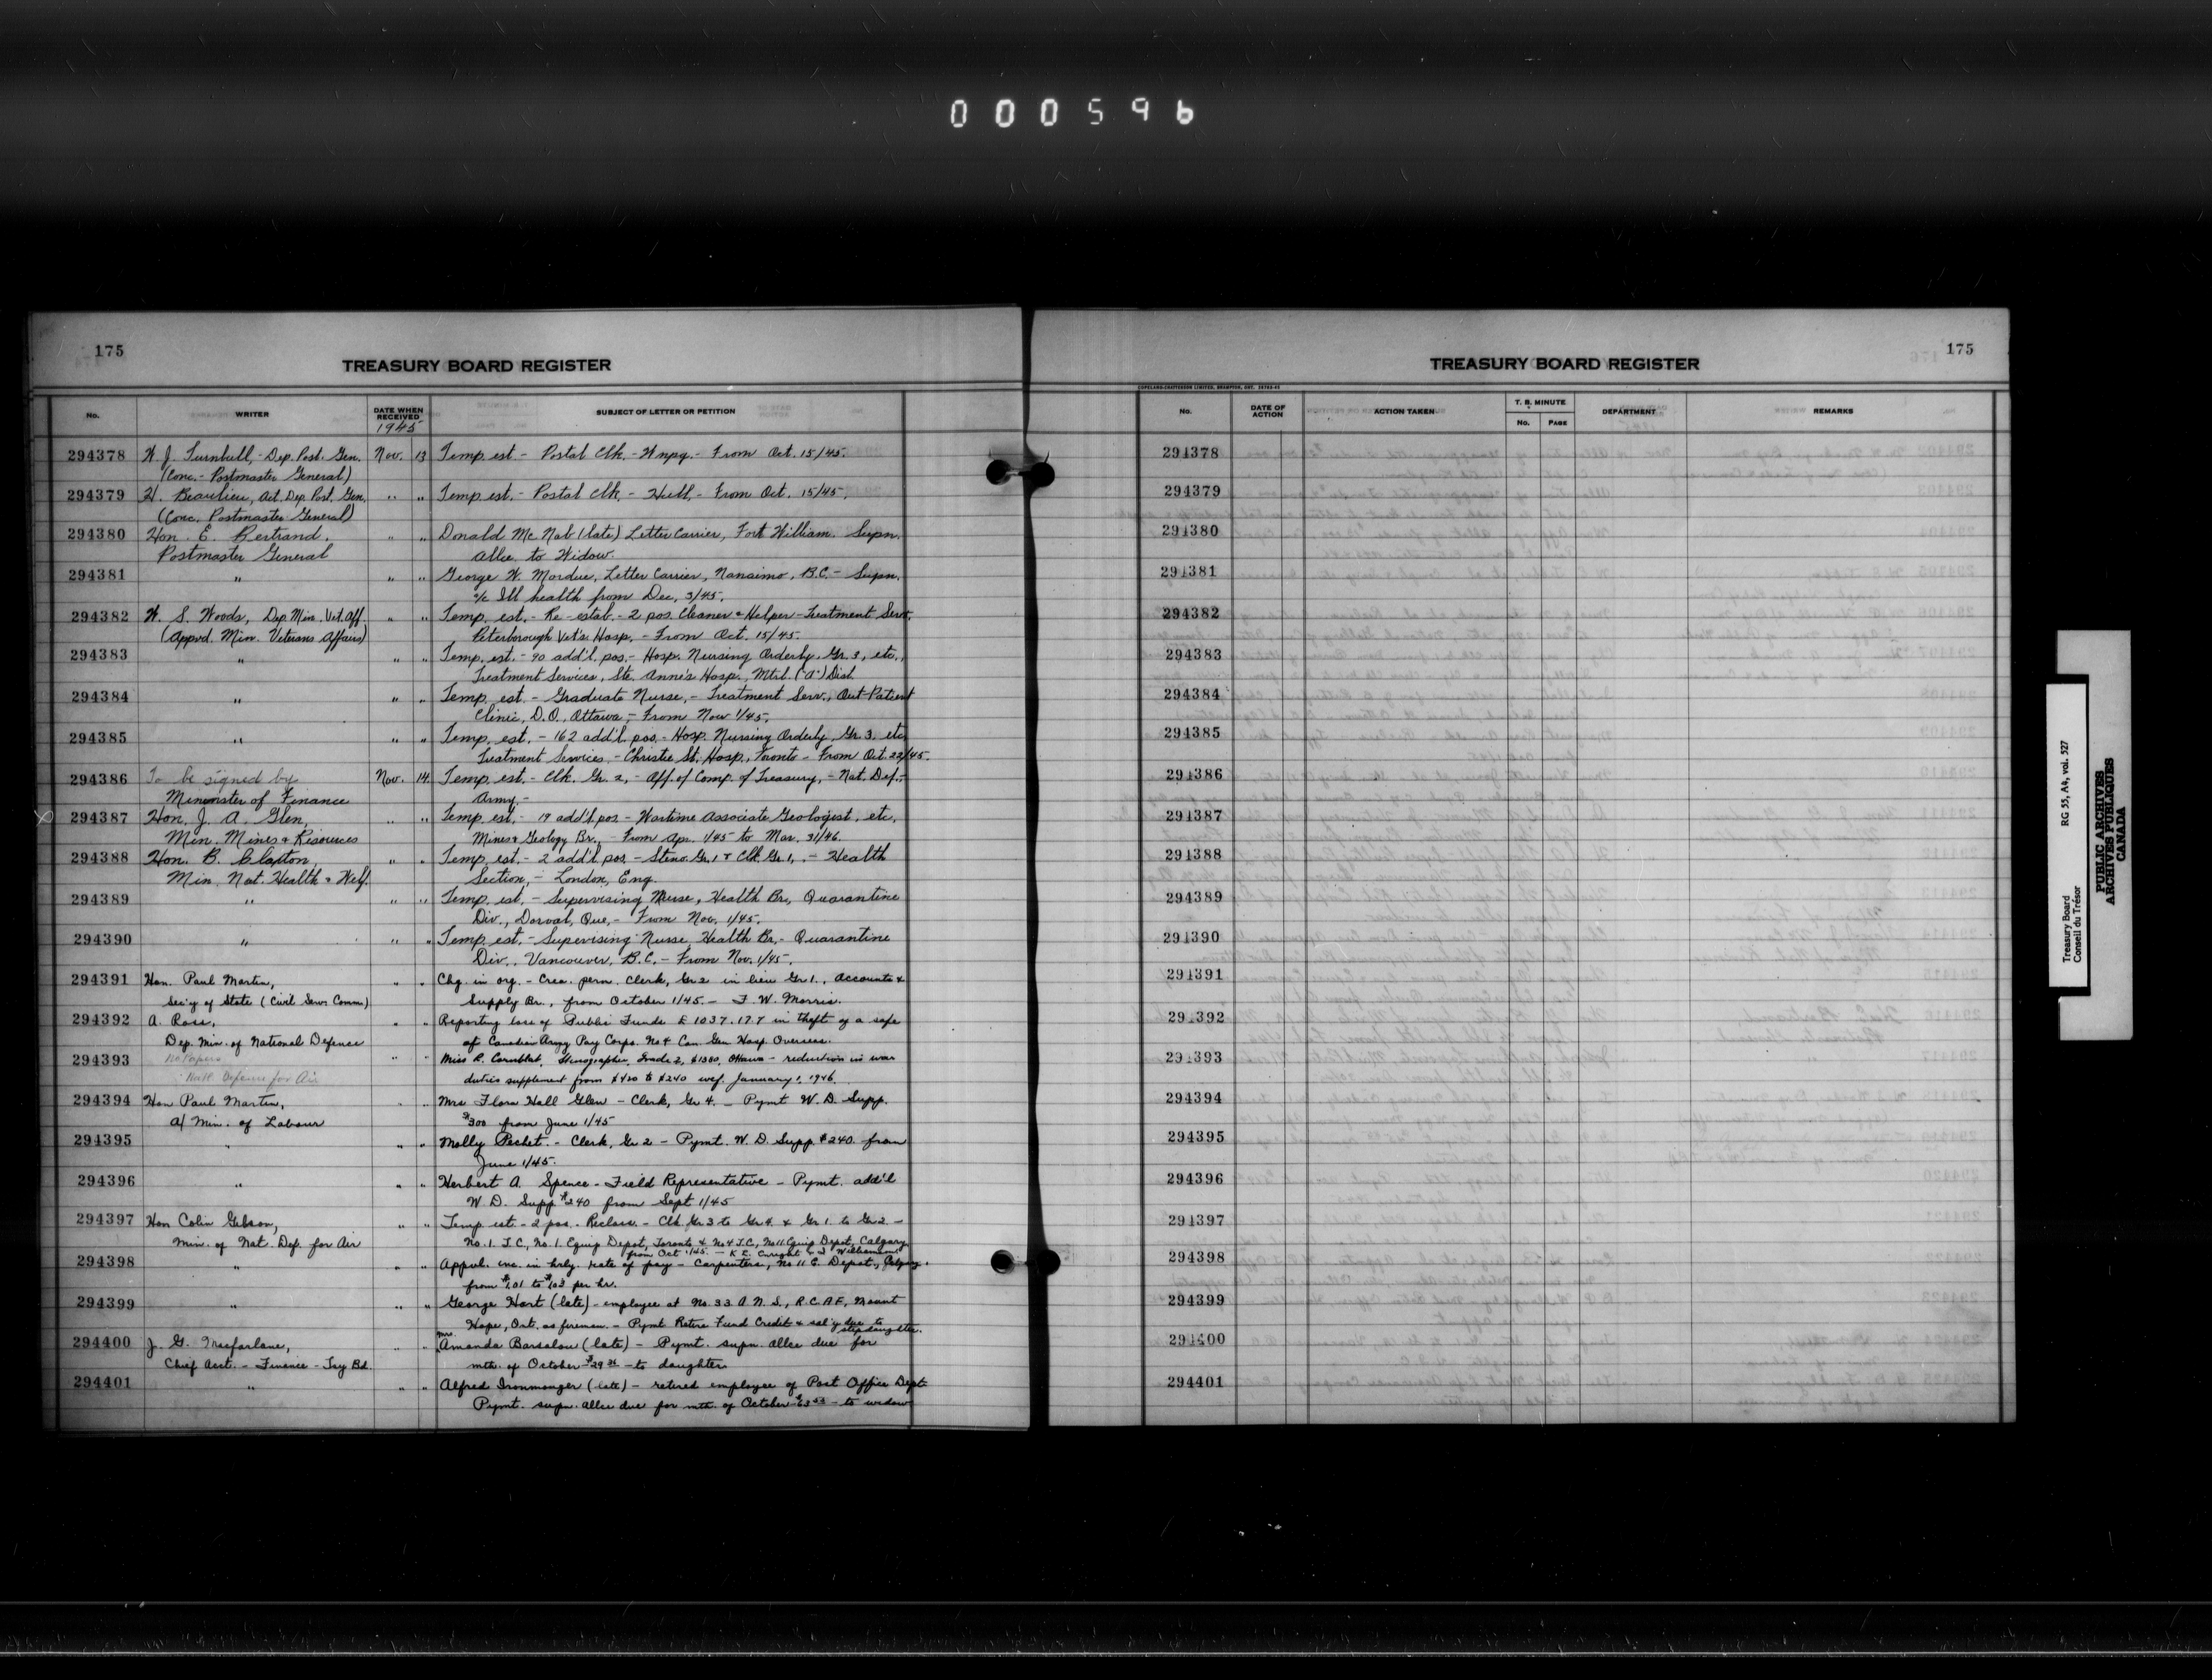 000596
175
TREASURY BOARD REGISTER
No.
WRITER
DATE WHEN RECEIVED
1945
SUBJECT OF LETTER OR PETITION
294378 W. J. Turnbull, - Dep. Post. Gen. Nov. 13 Temp. est - Postal Clk. - Wnpg. - From Oct. 15/45.
(Conc. - Postmaster General)
294379 H. Beaulieu, Act. Dep. Post. Gen. " " Temp. est. - Postal Clk - Hull, - From Oct. 15/45.
(Conc. Postmaster General)
294380 Hon. E. Bertrand. " " Donald McNab (late) Letter Carrier, Fort William. Supn.
Postmaster General Allce to Widow.
294381 " " " George W. Mordue, Letter Carrier, Nanaimo, B.C. - Supn.
a/c Ill health from Dec. 3/45.
294382 W. S. Woods, Dep. Min. Vet. Aff. " " Temp. est. - Re-estab. - 2 pos. Cleaner & Helper - Treatment Serv.
(Appvd. Min. Veterans Affairs) Peterborough Vet's Hosp. - From Oct. 15/45.
294383 " " " Temp. est. - 90 add'l. pos. - Hosp. Nursing Orderly, Gr. 3, etc.,
Treatment Services, Ste. Anne's Hosp., Mtrl. ("A") Dist.
294384 " " " Temp. est. - Graduate Nurse, - Treatment Serv., Out-Patient
Clinic, D.O., Ottawa, - From Nov 1/45.
294385 " " " Temp. est. - 162 add'l. pos. - Hosp. Nursing Orderly, Gr. 3. etc
Treatment Services, - Christie St. Hosp., Toronto - From Oct. 22/45.
294386 To be signed by Nov. 14. Temp. est. - Clk. Gr. 2, - Off. of Comp. of Treasury, - Nat. Def. -
Minister of Finance Army. -
294387 Hon. J. A. Glen, " " Temp. est. - 19 add'l. pos - Wartime Associate Geologist, etc.
Min. Mines & Resources Mines & Geology Br., - From Apr. 1/45 to Mar. 31/46.
294388 Hon. B. Claxton, " " Temp. est. - 2 add'l. pos. - Steno. Gr. 1 & Clk. Gr. 1, - Health
Min. Nat. Health & Welf. Section, - London, Eng.
294389 " " " Temp. est. - Supervising Nurse, Health Br., Quarantine
Div., Dorval, Que. - From Nov. 1/45.
294390 " " " Temp. est. - Supervising Nurse, Health Br. - Quarantine
Div., Vancouver, B.C. - From Nov. 1/45.
294391 Hon. Paul Martin, " " Chg. in org. - Crea. perm. Clerk, Gr 2 in lieu Gr 1., Accounts &
Sec'y of State (Civil Serv. Comm) Supply Br., from October 1/45. - F. W. Morris.
294392 A. Ross, " " Reporting loss of Public Funds £ 1037.17.7 in theft of a safe
Dep. Min. of National Defence of Canadian Army Pay Corps. No 4 Can. Gen. Hosp. Overseas.
294393 No Papers " " Miss R. Cornblat, Stenographer, Grade 2, $1380, Ottawa - reduction in war
Natl. Defence for Air duties supplement from $420 to $240 wef. January 1, 1946.
294394 Hon Paul Martin, " " Mrs Flora Hall Glen - Clerk, Gr 4. - Pymt W. D. Supp.
a/ Min. of Labour $300 from June 1/45
294395 " " " Molly Pechet. - Clerk, Gr 2 - Pymt. W. D. Supp. $240. from
June 1/45.
294396 " " " Herbert A. Spence - Field Representative - Pymt. add'l
W. D. Supp $240 from Sept 1/45
294397 Hon Colin Gibson, " " Temp est - 2 pos. - Reclass. - Clk. Gr 3 to Gr 4 & Gr 1 to Gr 2 -
Min. of Nat. Def. for Air No. 1. T.C, No. 1. Equip Depot, Toronto & No 4 T.C, No 11 Equip Depot, Calgary
from Oct 1/45. - Williamson
294398 " " " Appvl. inc. in hrly. rate of pay - Carpenters, No 11 E. Depot., Calgary.
from $1.01 to $1.03 per hr.
294399 " " " George Hart (late) - employee at No. 33 A. N. S., R.C.A.F, Mount
Hope, Ont. as fireman. - Pymt Retire Fund Credit & sal'y due to
stepdaughter.
294400 J. G. Macfarlane, " " Mrs. Amanda Barsalou (late) - Pymt. supn. allce due for
Chief Acct. - Finance - Tsy Bd. mth. of October $29 - to daughter
294401 " " " Alfred Ironmonger (late) - retired employee of Post Office Dept.
Pymt. supn. allce due for mth. of October - to widow
175
TREASURY BOARD REGISTER
COPELAND-CHATTERSON LIMITED, BRAMPTON, ONT.
No.
DATE OF ACTION
ACTION TAKEN
T. B. MINUTE
No.
PAGE
DEPARTMENT
REMARKS
294378
294379
294380
294381
294382
294383
294384
294385
294386
294387
294388
294389
294390
294391
294392
294393
294394
294395
294396
294397
294398
294399
294400
294401
Treasury Board RG 55, A4, vol. 527
Conseil du Trésor
PUBLIC ARCHIVES
ARCHIVES PUBLIQUES
CANADA